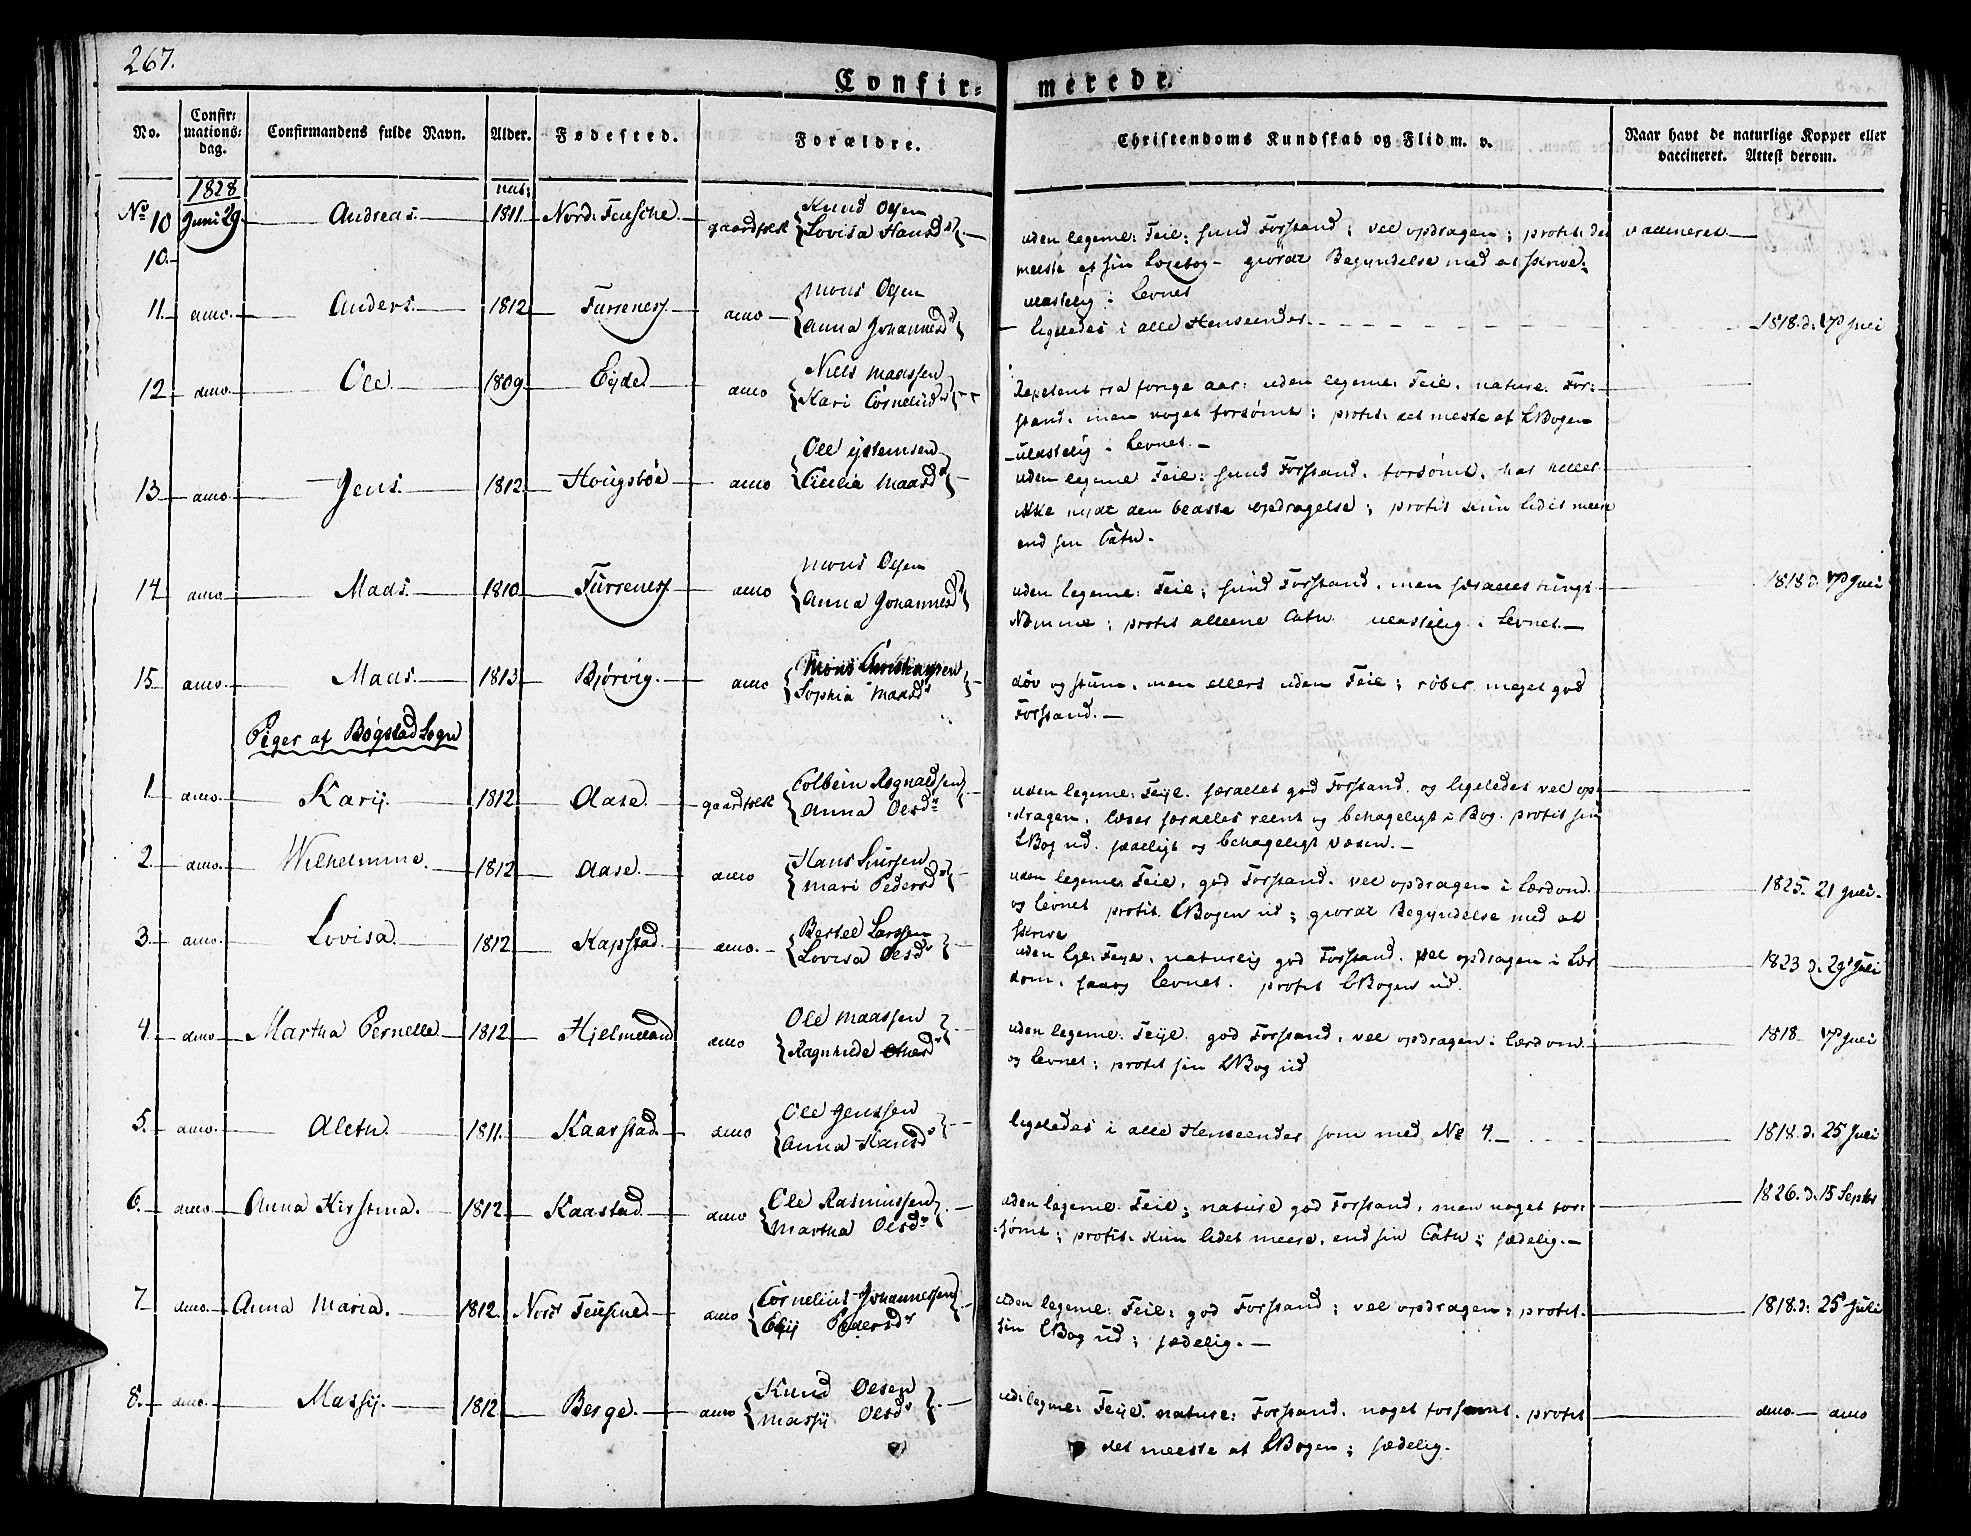 267.
Confir=
merede.
No.
Confir=
mations=
dag.
Confirmandens fulde Navn.
Alder.
Fødested.
Forældre.
Christendoms Kundskab og Flid m. v.
Naar havt de naturlige Kopper eller
vaccineret. Attest derom.
1828
nat:
No 10 Juni 29. Andreas. 1811. Nord: gaardfolk Knud Olsen
Lovisa Hansd
uden legeme: Feil: sund Forstand; vel opdragen; protit: det vaccineret
meeste af sin Lærebog - giordt Begyndelse med at skrive.
ulastelig i Levnet
10.
11. dmo. Anders. 1812 Fursenes. dmo Mons Olsen
Anna Johannesd
ligeledes i alle Henseender. 1818. d. 17 Juli
12 dmo. Ole. 1809. Eyde dmo Niels Maassen
Kari Cornelid
Repetent fra forige aar: uden legeme: Feil. nature: For=
stand, men noget forsømt; protit: det meste af LBogen
ulastelig i Levnet.
13. dmo. Jens. 1812. Hougsbøe dmo Ole
Cicilia Maasd
uden legeme Feil: sund Forstand. forsømt, har heller
ikke nydt den bedste opdragelse; protit kun lidet meere
end sin Catu.
14 dmo. Mads. 1810. Fursenes. dmo Mons Olsen
Anna Johannesd
uden legeme: Feil; sund Forstand, men særdeles tungt 1818 d. 17 Juli
Nemme; protit alleene Catu ulastelig i Levnet.
15. dmo. Mads. 1813. Bjørvig. dmo Mons
Sophia Maasd
døv og stum, men ellers uden Feil; røber meget god
Forstand.
Piger af Bøgstad Sogn
1. dmo. Karij. 1812 Aase. gaardfolk Colbein
Anna Olsd
uden legeme: Feyl. særdeles god Forstand. og ligeledes vel op=
dragen. læser særdeles reent og behageligt i Bog. protit sin
LBog ud. sædeligt og behageligt væsen.
2. dmo. Wilhelmine. 1812 Aase. dmo Hans
Mari Pedersd
uden legeme Feil, god Forstand. vel opdragen i Lærdom.
og Levnet protit. LBogen ud; giordt Begyndelse med at
skrive
1825. 21 Juli.
3. dmo. Lovisa. 1812 Kapstad. dmo. Bertel Larssen
Lovisa Olsd
uden lge: Feyl. naturlig god Forstand. vel opdragen i Lær
dom, saa og Levnet. protit LBogen ud.
1823 d. 29 Juli
4. dmo Martha Pernelle 1812 Hjelmeland dmo Ole Maassen
Ragnhilde
uden legeme: Feyl. god Forstand, vel opdragen i Lærdom
og Levnet; protit sin LBog ud
1818 17 Juli
5. dmo. Aletu. 1811. Kaarstad. dmo Ole Jenssen
Anna Hansd
ligeledes i alle Henseender som med No 4. 1818. d. 25 Juli
6. dmo Anna Kirstina. 1812. Kaastad. dmo Ole Rasmussen
Martha Olsd
uden legeme: Feil; nature god Forstand, men noget for=
sømt; protit. kun lidet meere, end sin Catu; sædelig.
1826. d. 15 Septbr
7 dmo. Anna Maria. 1812. Nord dmo Cornelius Johannessen
Pedersd
uden legeme: Feil; god Forstand; vel opdragen; protit.
sin LBog ud; sædelig.
1818. d. 25 Juli
8. dmo. Massij. 1812. Berge. dmo Knud Olsen
Massij Olsd
ud: legeme: Feyl. nature: Forstand. noget forsømt. protit dmo dmo
det meeste af LBogen; sædelig.